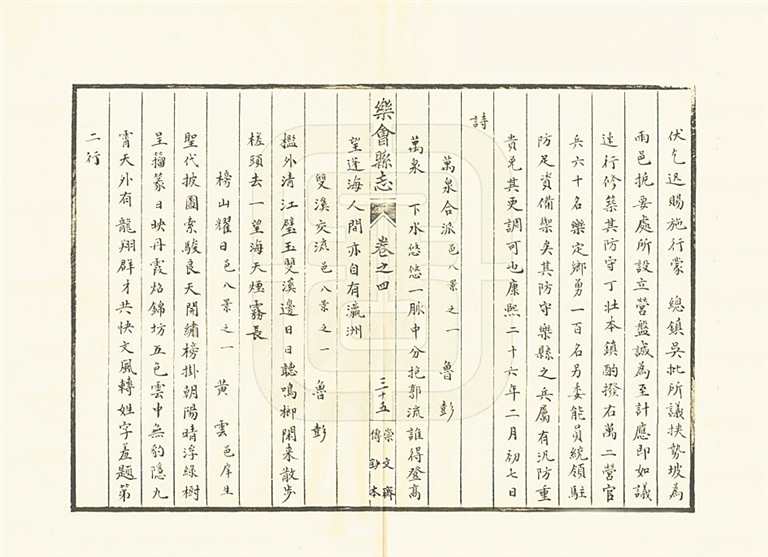 伏乞迅賜施行蒙　總鎮吳批所議挨勢坡為
兩邑扼要處所設立營盤誠為至計應即如議
速行修築其防守丁壯本鎮酌撥右萬二營官
兵六十名樂定鄉勇一百名另委能員統領駐
防足資備禦矣其防守樂縣之兵屬有汛防重
責免其更調可也康熙二十六年二月初七日
詩
萬泉合派 邑八景之一　魯彭
萬泉　下水悠悠一脉中分抱郭流誰得登高
樂會縣志　卷之四　三十五　崇文齋傳鈔本
望蓬海人間亦自有瀛洲
雙溪交流 邑八景之一　魯彭
檻外清江壁玉雙溪邊日日聽鳴榔閑来散步
槎頭去一望海天煙霧長
榜山耀日 邑八景之一　黃雲 邑庠生
聖代披圖索駿良天開繡榜掛朝陽晴浮綠樹
呈籀篆日映丹霞焰錦坊五色雲中無豹隱九
霄天外有龍翔群才共快文風轉姓字應題第
二行